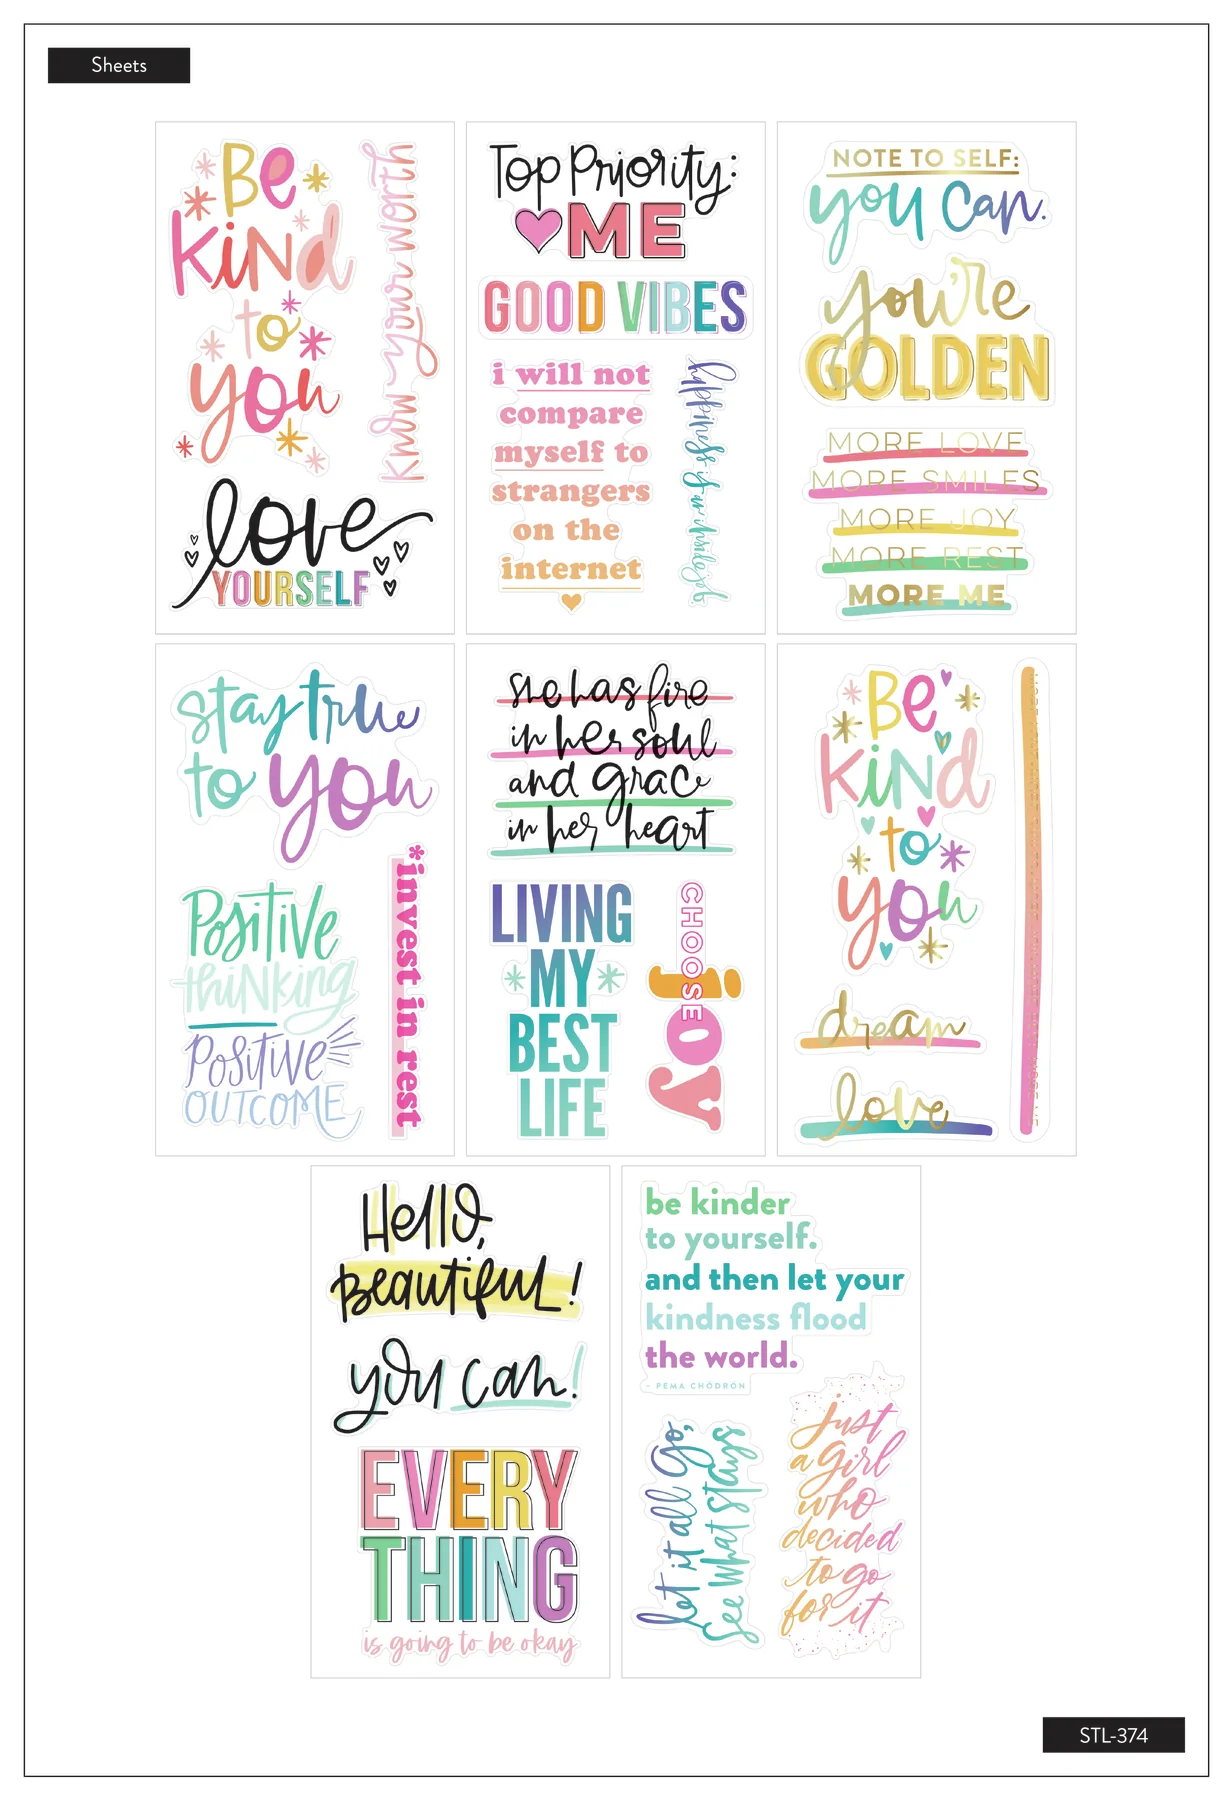 Sheets
Be
kind
to
you
know your worth
love
YOURSELF
Top Priority:
ME
GOOD VIBES
i will not
compare
myself to
strangers
on the
internet
happiness is an inside job
NOTE TO SELF:
you can.
you're
GOLDEN
MORE LOVE
MORE SMILES
MORE JOY
MORE REST
MORE ME
stay true
to you
Positive
thinking
Positive
OUTCOME
*invest in rest
she has fire
in her soul
and grace
in her heart
LIVING
MY
BEST
LIFE
CHOOSE
joy
Be
kind
to
you
dream
love
Hello,
Beautiful!
you can!
EVERY
THING
is going to be okay
be kinder
to yourself.
and then let your
kindness flood
the world.
– PEMA CHÖDRÖN
let it all go,
see what stays
just
a girl
who
decided
to go
for it
STL-374